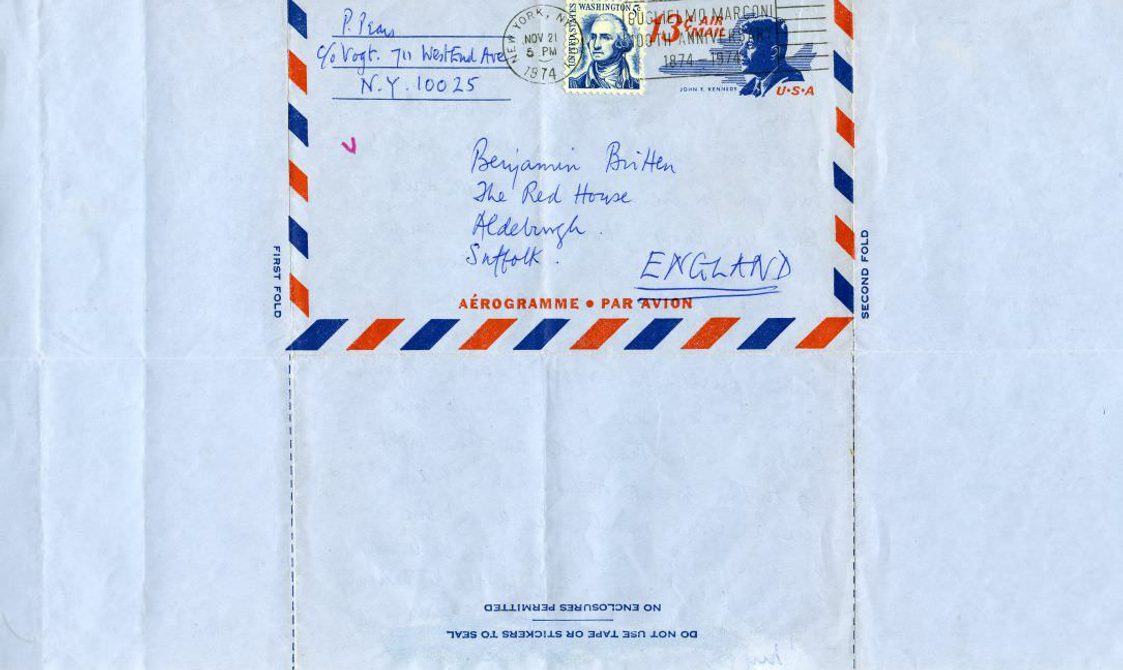 P. Pears
c/o Vogt. 711 West End Ave
N.Y. 10025
NEW YORK, N.Y.
NOV 21
5 PM
1974
UNITED STATES
WASHINGTON 5c
GUGLIELMO MARCONI
100TH ANNIVERSARY
1874-1974
13c AIR
MAIL
JOHN F. KENNEDY
U·S·A
Benjamin Britten
The Red House
Aldeburgh.
Suffolk.
ENGLAND
AÉROGRAMME • PAR AVION
FIRST FOLD
SECOND FOLD
NO ENCLOSURES PERMITTED
DO NOT USE TAPE OR STICKERS TO SEAL